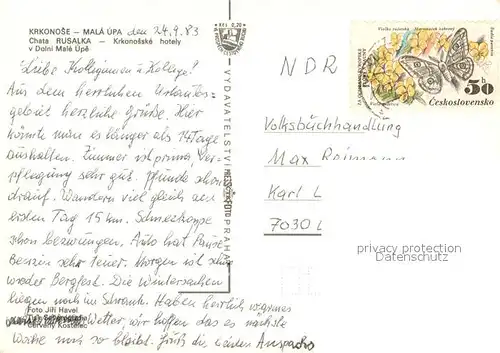 KRKONOŠE — MALÁ ÚPA den 24.9.83
Chata RUSALKA — Krkonošské hotely
v Dolní Malé Úpě
Liebe Kolleginnen u. Kollege!
Aus dem herrlichen Urlaubs-
gebiet herzliche Grüße. Hier
könnte man es länger als 14 Tage
aushalten. Zimmer ist prima, Ver-
pflegung sehr gut. Pfunde schon
drauf. Wandern viel gleich am
ersten Tag 15 km. Schneekoppe
schon bezwungen. Auto hat Pause
Benzin sehr teuer. Morgen ist schon
wieder Bergfest. Die Wintersachen
liegen noch im Schrank. Haben herrlich warmes
Foto Jiří Havel
Wetter, wir hoffen das es nächste
Červený Kostelec
Woche noch so bleibt. Grüß die beiden Anspachs
Kčs 0,70
VYDAVATELSTVÍ
PRAHA
NDR
Československo
50 h
Volksbuchhandlung
Max
Karl L
7030 L
privacy protection
Datenschutz